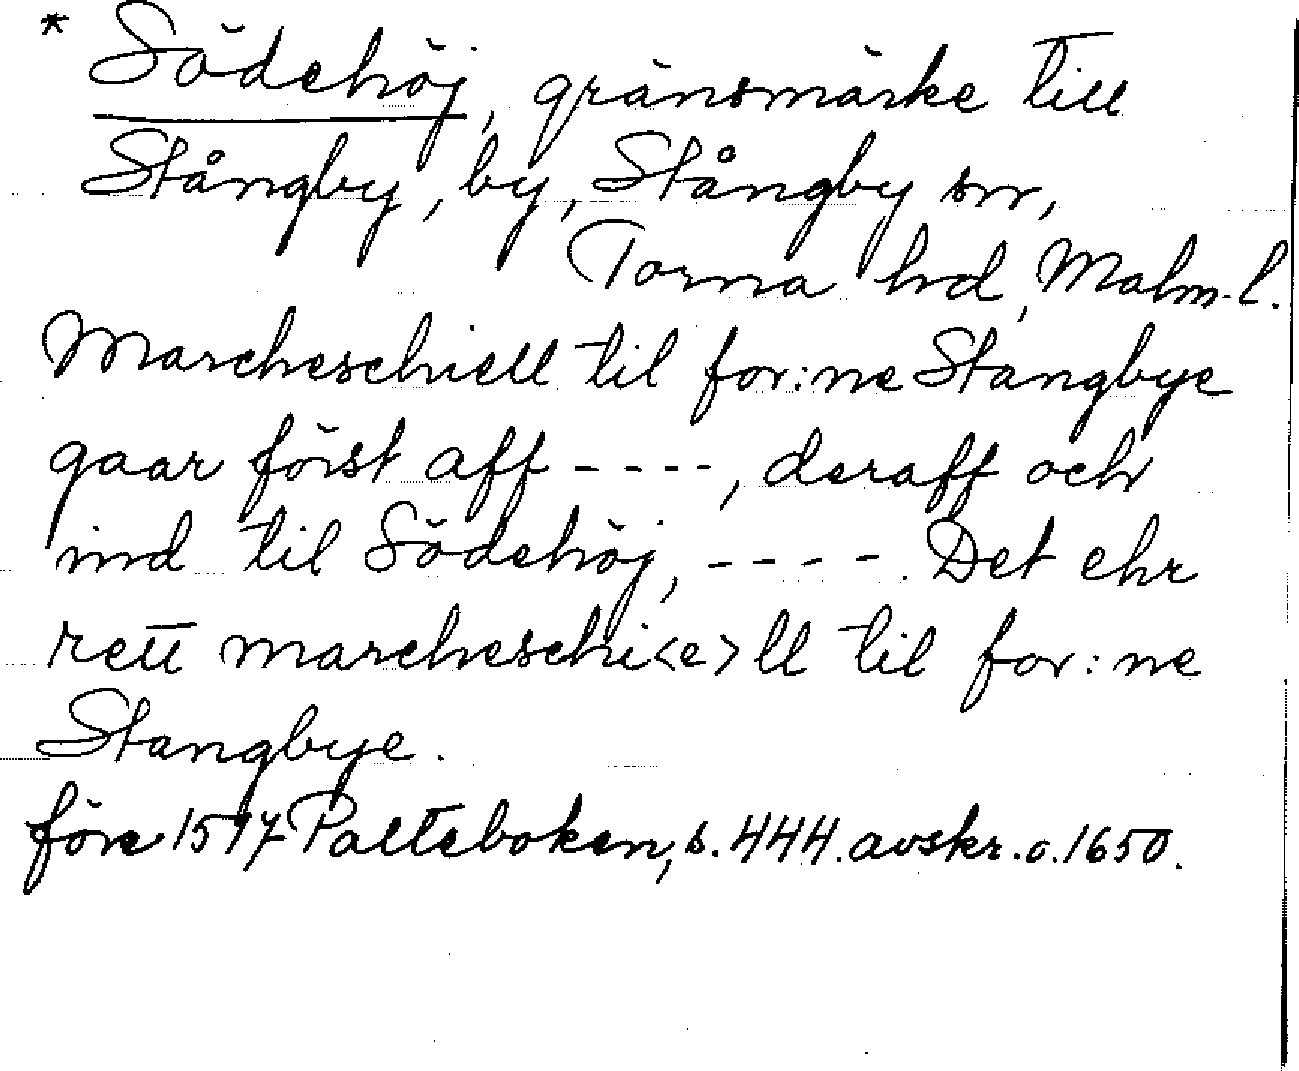 * Södehöj, gränsmärke till
Stångby, by, Stångby sn,
Torna hd, Malm. l.
Marcheschiell til for:ne Stangbye
gaar först aff - - - -, deraff och
ind til Södehöj, - - - -. Det ehr
rett marcheschi<e>ll til for:ne
Stangbye.
före 1597 Palteboken, s. 444. avskr. o. 1650.